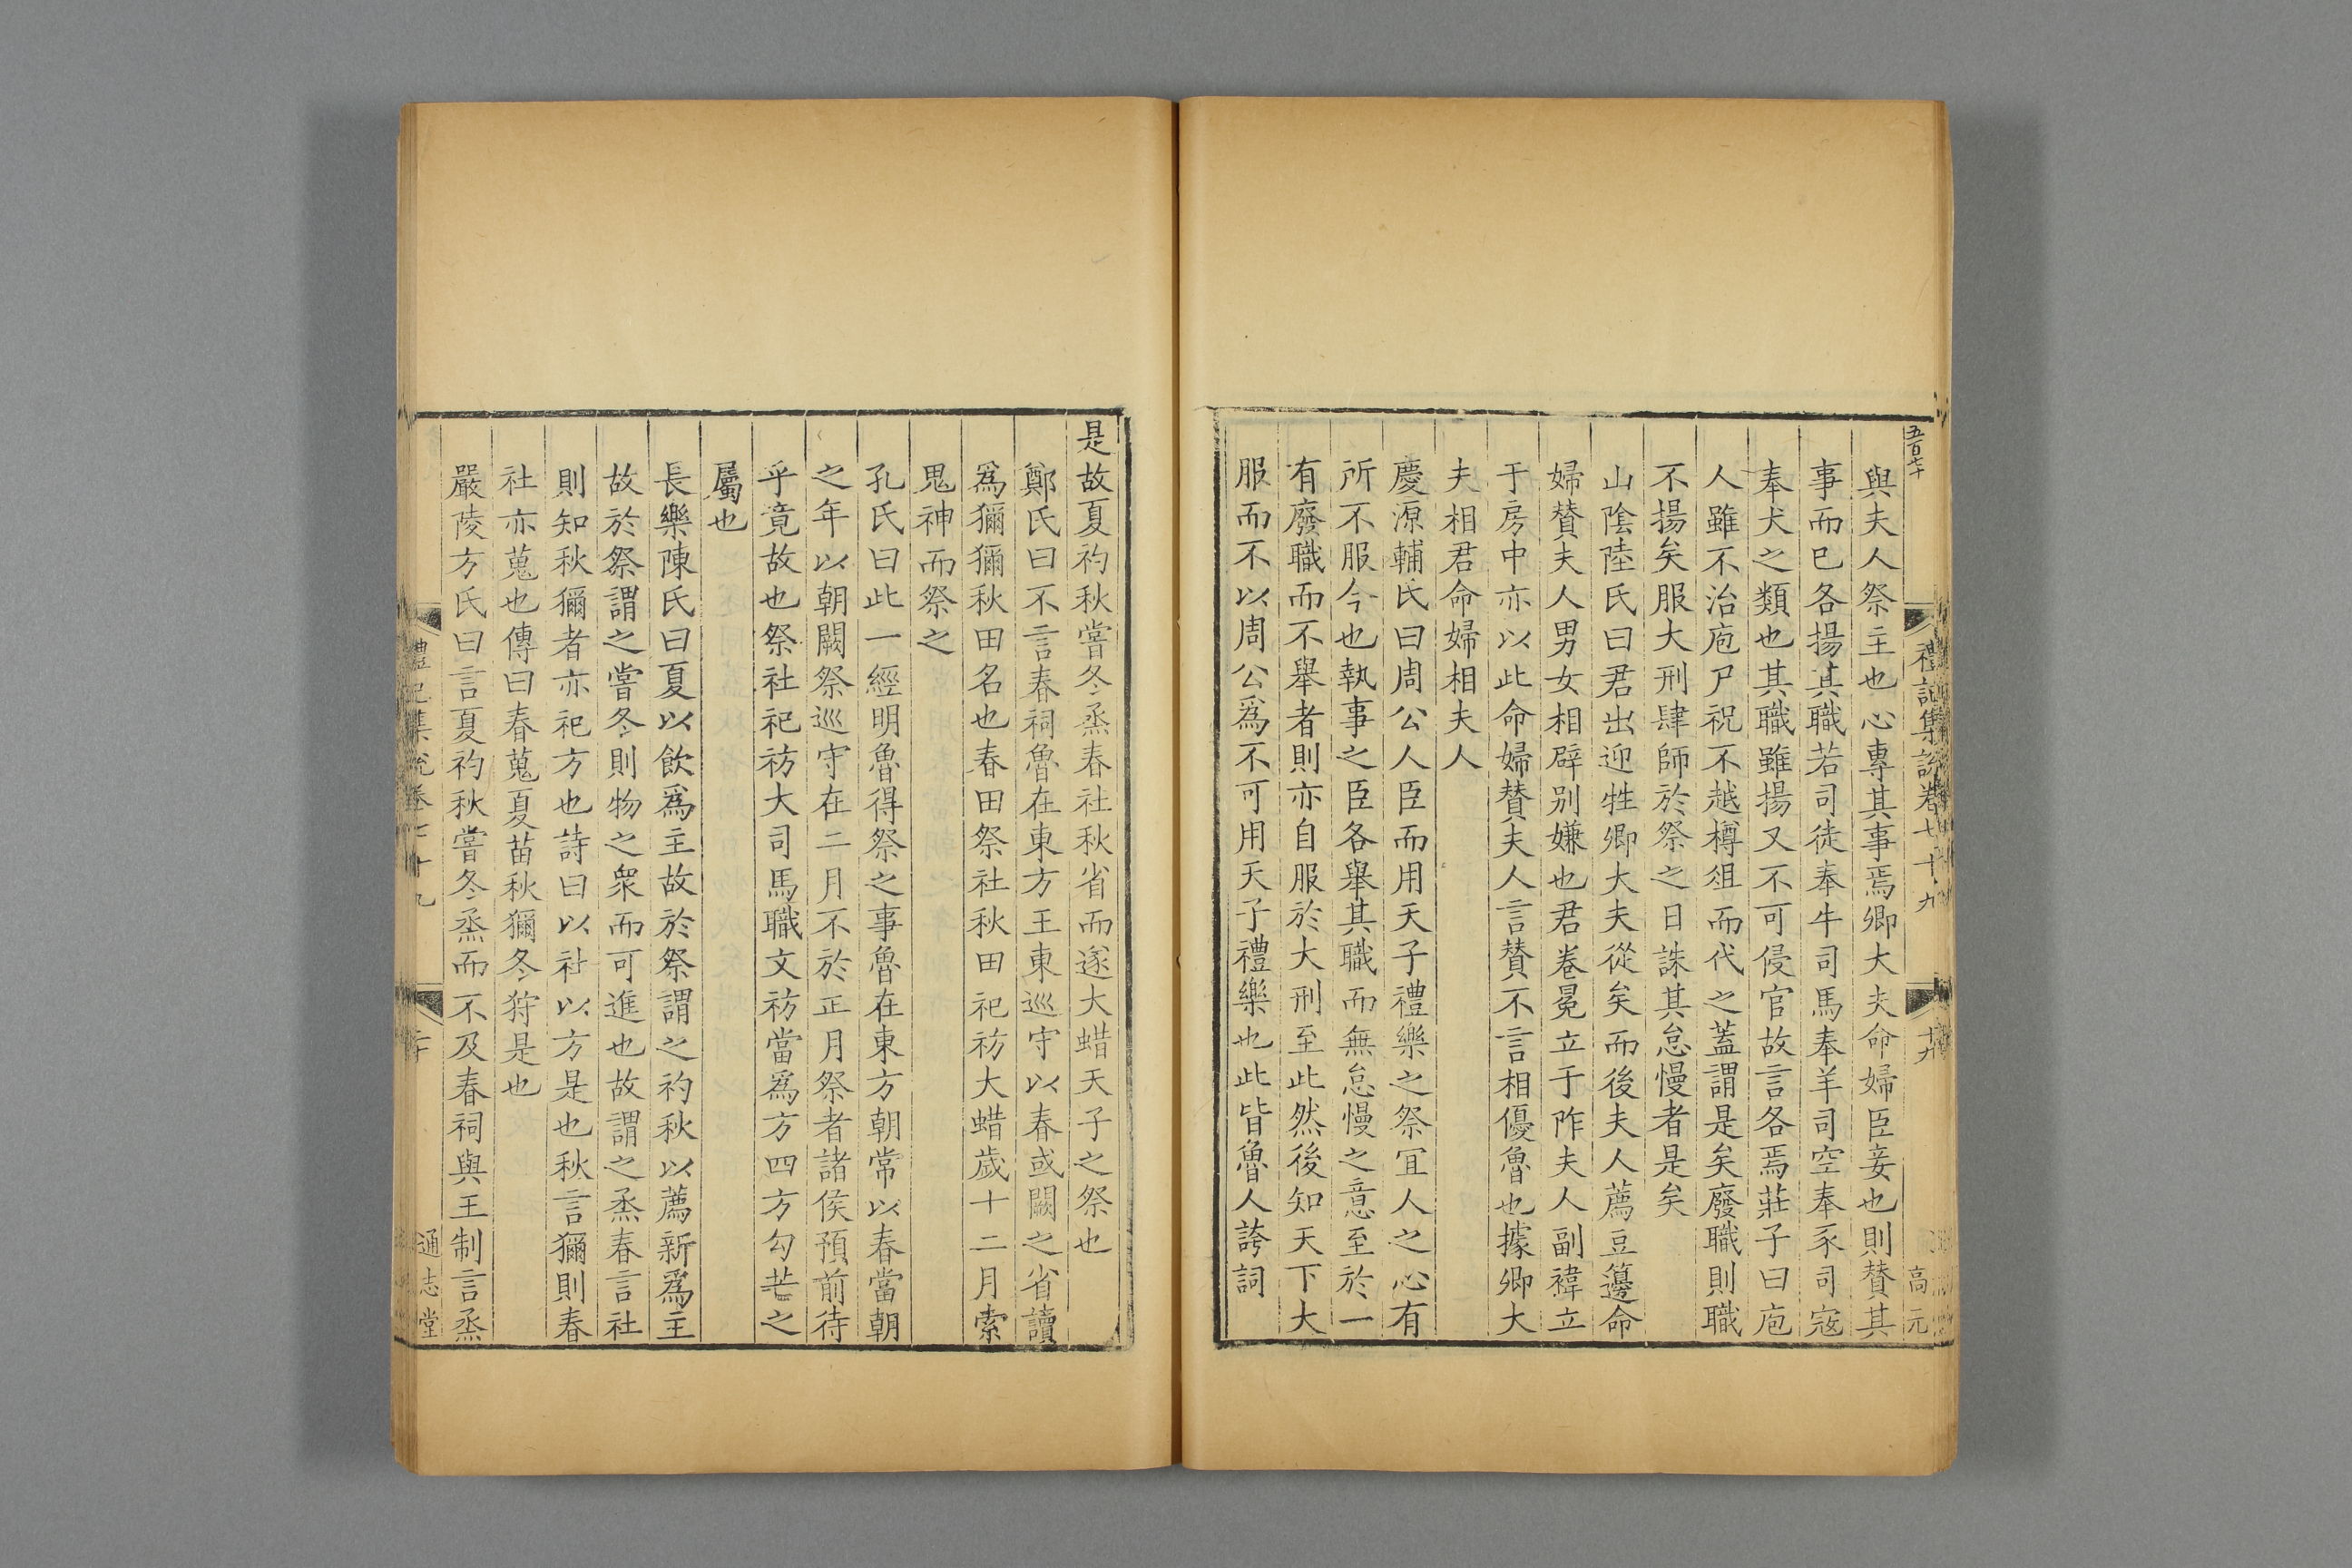 五百七十
禮記集說卷七十九
十九
高元
與夫人祭主也心專其事焉卿大夫命婦臣妾也則賛其
事而已各揚其職若司徒奉牛司馬奉羊司空奉豕司寇
奉犬之類也其職雖揚又不可侵官故言各焉莊子曰庖
人雖不治庖尸祝不越樽俎而代之蓋謂是矣廢職則職
不揚矣服大刑肆師於祭之日誅其怠慢者是矣
山陰陸氏曰君出迎牲卿大夫從矣而後夫人薦豆籩命
婦賛夫人男女相辟别嫌也君卷冕立于阼夫人副褘立
于房中亦以此命婦賛夫人言賛不言相優魯也據卿大
夫相君命婦相夫人
慶源輔氏曰周公人臣而用天子禮樂之祭宜人之心有
所不服今也執事之臣各舉其職而無怠慢之意至於一
有廢職而不舉者則亦自服於大刑至此然後知天下大
服而不以周公爲不可用天子禮樂也此皆魯人誇詞
是故夏礿秋嘗冬烝春社秋省而遂大蜡天子之祭也
鄭氏曰不言春祠魯在東方王東巡守以春或闕之省讀
爲獮獮秋田名也春田祭社秋田祀祊大蜡歲十二月索
鬼神而祭之
孔氏曰此一經明魯得祭之事魯在東方朝常以春當朝
之年以朝闕祭巡守在二月不於正月祭者諸侯預前待
乎竟故也祭社祀祊大司馬職文祊當爲方四方勾芒之
屬也
長樂陳氏曰夏以飲爲主故於祭謂之礿秋以薦新爲主
故於祭謂之嘗冬則物之衆而可進也故謂之烝春言社
則知秋獮者亦祀方也詩曰以社以方是也秋言獮則春
社亦蒐也傳曰春蒐夏苗秋獮冬狩是也
嚴陵方氏曰言夏礿秋嘗冬烝而不及春祠與王制言烝
禮記集說卷七十九
二十
通志堂